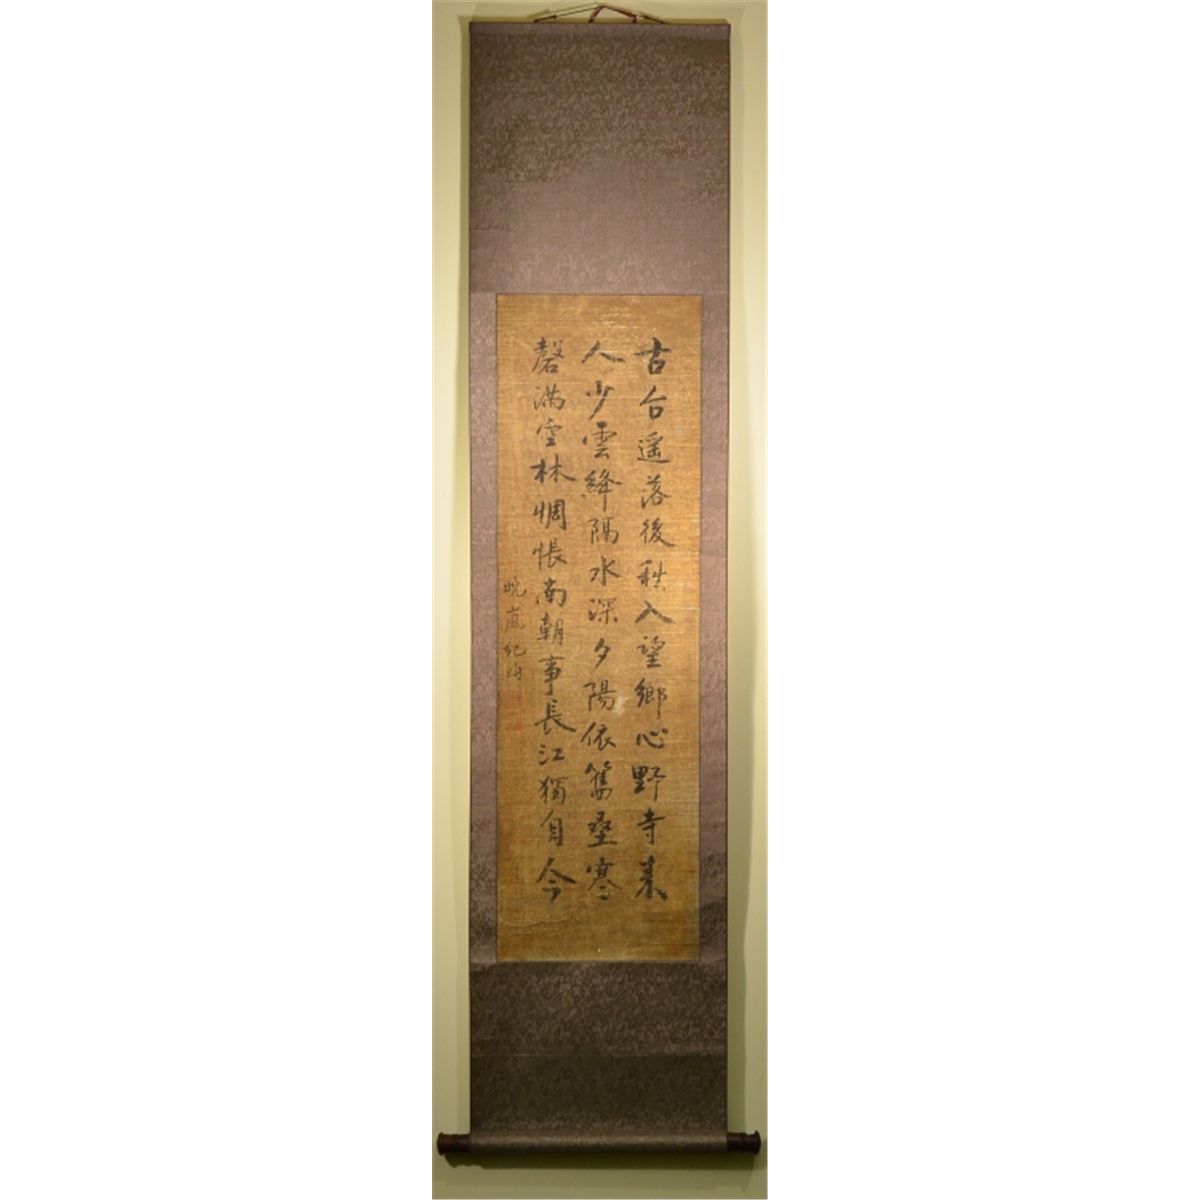 古台遥落後秋入望鄉心野寺来
人少雲絳隔水深夕陽依舊壘寒
磬滿空林惆悵南朝事長江獨自今
曉嵐紀昀